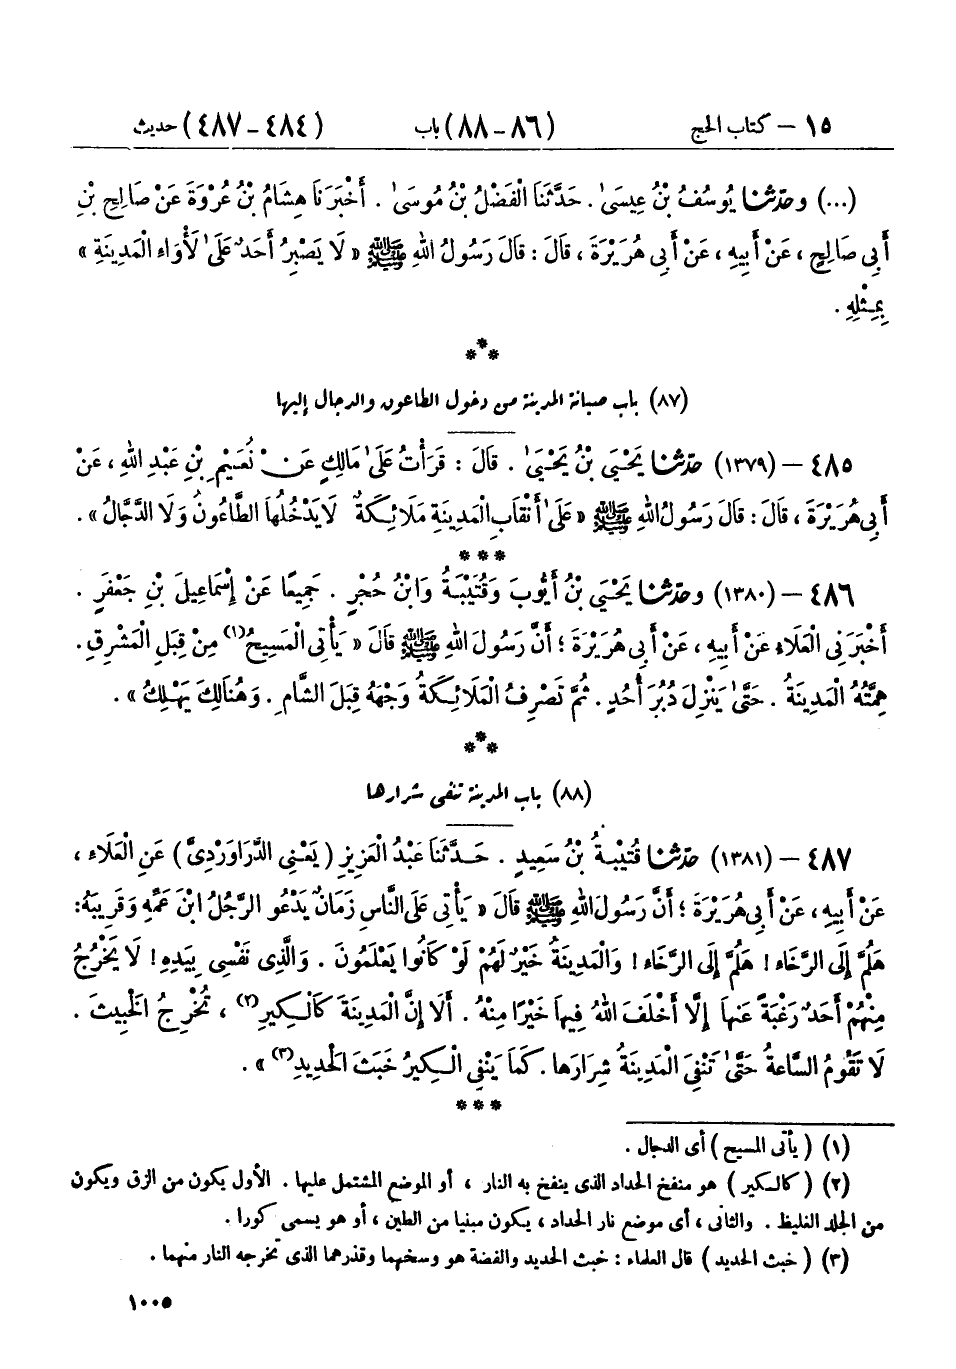 ١٥ – كتاب الحج (٨٦-٨٨) باب (٤٨٤-٤٨٧) حديث
(...) وحَدَّثَنَا يُوسُفُ بْنُ عِيسَىٰ . حَدَّثَنَا الْفَضْلُ بْنُ مُوسَىٰ . أَخْبَرَنَا هِشَامُ بْنُ عُرْوَةَ عَنْ صَالِحِ بْنِ
أَبِي صَالِحٍ ، عَنْ أَبِيهِ ، عَنْ أَبِي هُرَيْرَةَ ، قَالَ : قَالَ رَسُولُ اللهِ ﷺ « لَا يَصْبِرُ أَحَدٌ عَلَىٰ لَأْوَاء الْمَدِينَةِ »
بِمِثْلِهِ .
***
(٨٧) باب صيانة المدينة من دخول الطاعون والدجال إليها
٤٨٥ – (١٣٧٩) حَدَّثَنَا يَحْيَىٰ بْنُ يَحْيَىٰ . قَالَ : قَرَأْتُ عَلَىٰ مَالِكٍ عَنْ نُعَيْمِ بْنِ عَبْدِ اللهِ ، عَنْ
أَبِي هُرَيْرَةَ ، قَالَ : قَالَ رَسُولُ اللهِ ﷺ « عَلَىٰ أَنْقَابِ الْمَدِينَةِ مَلَائِكَةٌ لَا يَدْخُلُهَا الطَّاعُونُ وَلَا الدَّجَّالُ » .
***
٤٨٦ – (١٣٨٠) وحَدَّثَنَا يَحْيَى بْنُ أَيُّوبَ وَقُتَيْبَةُ وَابْنُ حُجْرٍ . جَمِيعًا عَنْ إِسْمَاعِيلَ بْنِ جَعْفَرٍ .
أَخْبَرَنِي الْعَلَاءُ عَنْ أَبِيهِ ، عَنْ أَبِي هُرَيْرَةَ ؛ أَنَّ رَسُولَ اللهِ ﷺ قَالَ « يَأْتِي الْمَسِيحُ(١) مِنْ قِبَلِ الْمَشْرِقِ .
هِمَّتُهُ الْمَدِينَةُ . حَتَّىٰ يَنْزِلَ دُبُرَ أُحُدٍ . ثُمَّ تَصْرِفُ الْمَلَائِكَةُ وَجْهَهُ قِبَلَ الشَّامِ . وَهُنَالِكَ يَهْلِكُ » .
***
(٨٨) باب المدينة تنفي شرارها
٤٨٧ – (١٣٨١) حَدَّثَنَا قُتَيْبَةُ بْنُ سَعِيدٍ . حَدَّثَنَا عَبْدُ الْعَزِيزِ ( يَعْنِي الدَّرَاوَرْدِيَّ ) عَنِ الْعَلَاءِ ،
عَنْ أَبِيهِ ، عَنْ أَبِي هُرَيْرَةَ ؛ أَنَّ رَسُولَ اللهِ ﷺ قَالَ « يَأْتِي عَلَى النَّاسِ زَمَانٌ يَدْعُو الرَّجُلُ ابْنَ عَمِّهِ وَقَرِيبَهُ :
هَلُمَّ إِلَى الرَّخَاءِ ! هَلُمَّ إِلَى الرَّخَاءِ ! وَالْمَدِينَةُ خَيْرٌ لَهُمْ لَوْ كَانُوا يَعْلَمُونَ . وَالَّذِي نَفْسِي بِيَدِهِ ! لَا يَخْرُجُ
مِنْهُمْ أَحَدٌ رَغْبَةً عَنْهَا إِلَّا أَخْلَفَ اللهُ فِيهَا خَيْرًا مِنْهُ . أَلَا إِنَّ الْمَدِينَةَ كَالْكِيرِ(٢) ، تُخْرِجُ الْخَبِيثَ .
لَا تَقُومُ السَّاعَةُ حَتَّىٰ تَنْفِيَ الْمَدِينَةُ شِرَارَهَا . كَمَا يَنْفِي الْكِيرُ خَبَثَ الْحَدِيدِ(٣) » .
***
(١) ( يأتى المسيح ) أى الدجال .
(٢) ( كالكير ) هو منفخ الحداد الذى ينفخ به النار ، أو الموضع المشتمل عليها . الأول يكون من الزق ويكون
من الجلد الغليظ . والثانى ، أى موضع نار الحداد ، يكون مبنيا من الطين ، أو هو يسمى كورا .
(٣) ( خبث الحديد ) قال العلماء : خبث الحديد والفضة هو وسخهما وقذرهما الذى تخرجه النار منهما .
١٠٠٥